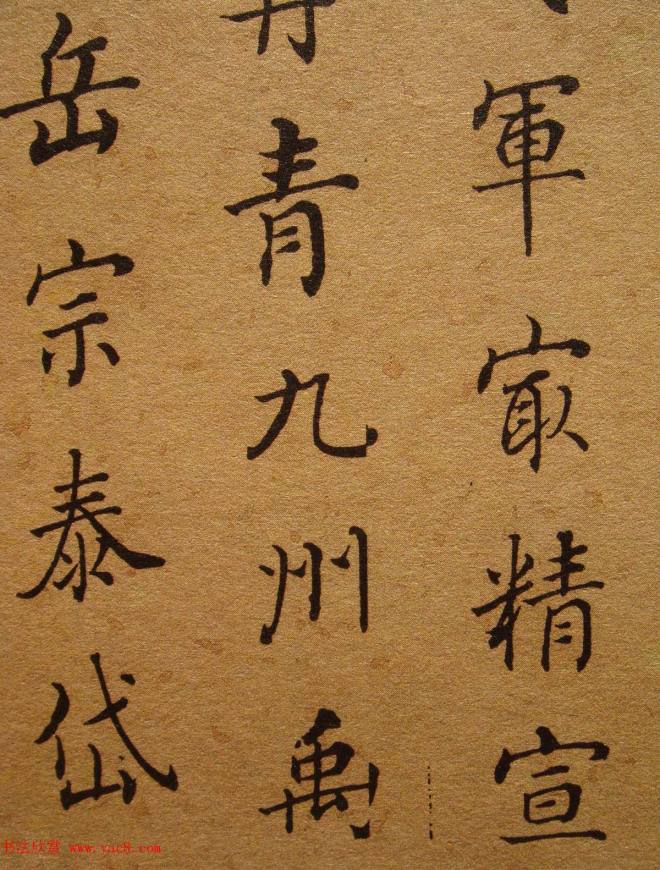 軍㝡精宣
丹青九州禹
岳宗泰岱
书法欣赏 www.yac8.com